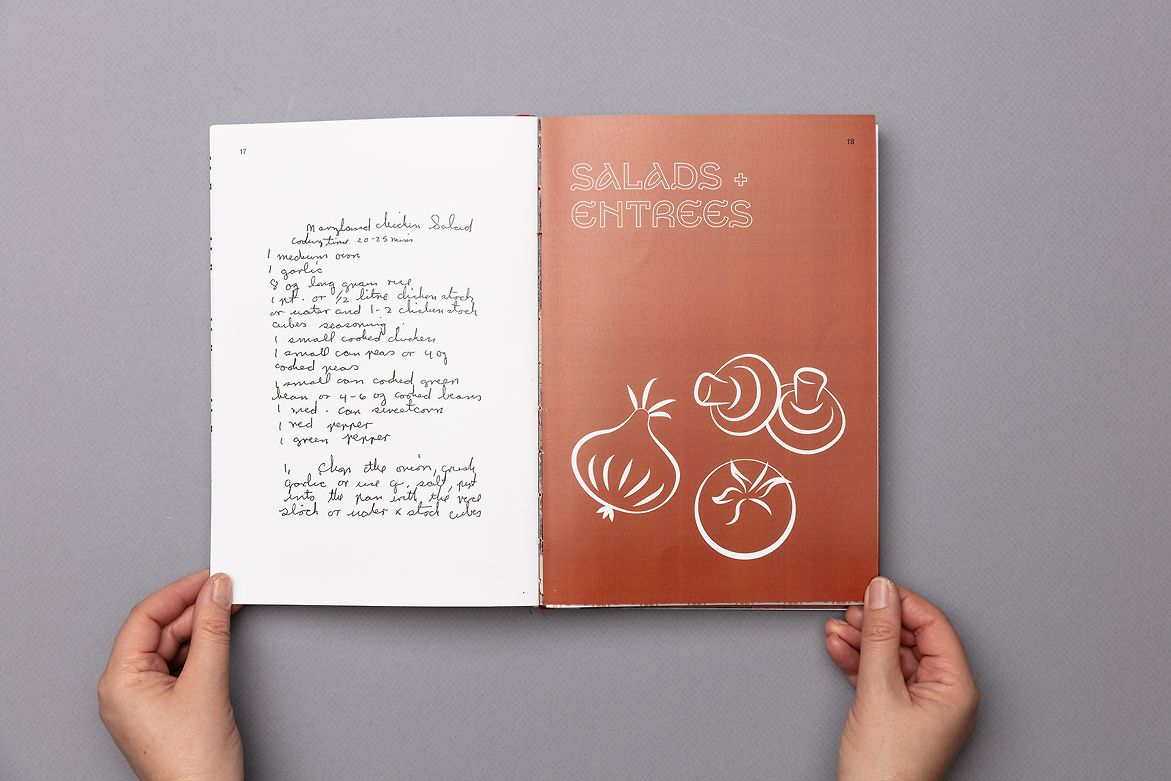 17
Maryland chicken Salad
Cooking time 20-25 mins
1 medium onion
1 garlic
8 og long grain rice
1 pt. or 1/2 litre chicken stock
or water and 1-2 chicken stock
cubes seasoning
1 small cooked chicken
1 small can peas or 4 og
cooked peas
1 small can cooked green
bean or 4-6 og cooked beans
1 med. can sweetcorn
1 red pepper
1 green pepper
1, Chop the onion, crush
garlic or use g. salt, put
into the pan with the rice
stock or water x stock cubes
18
SALADS +
ENTREES